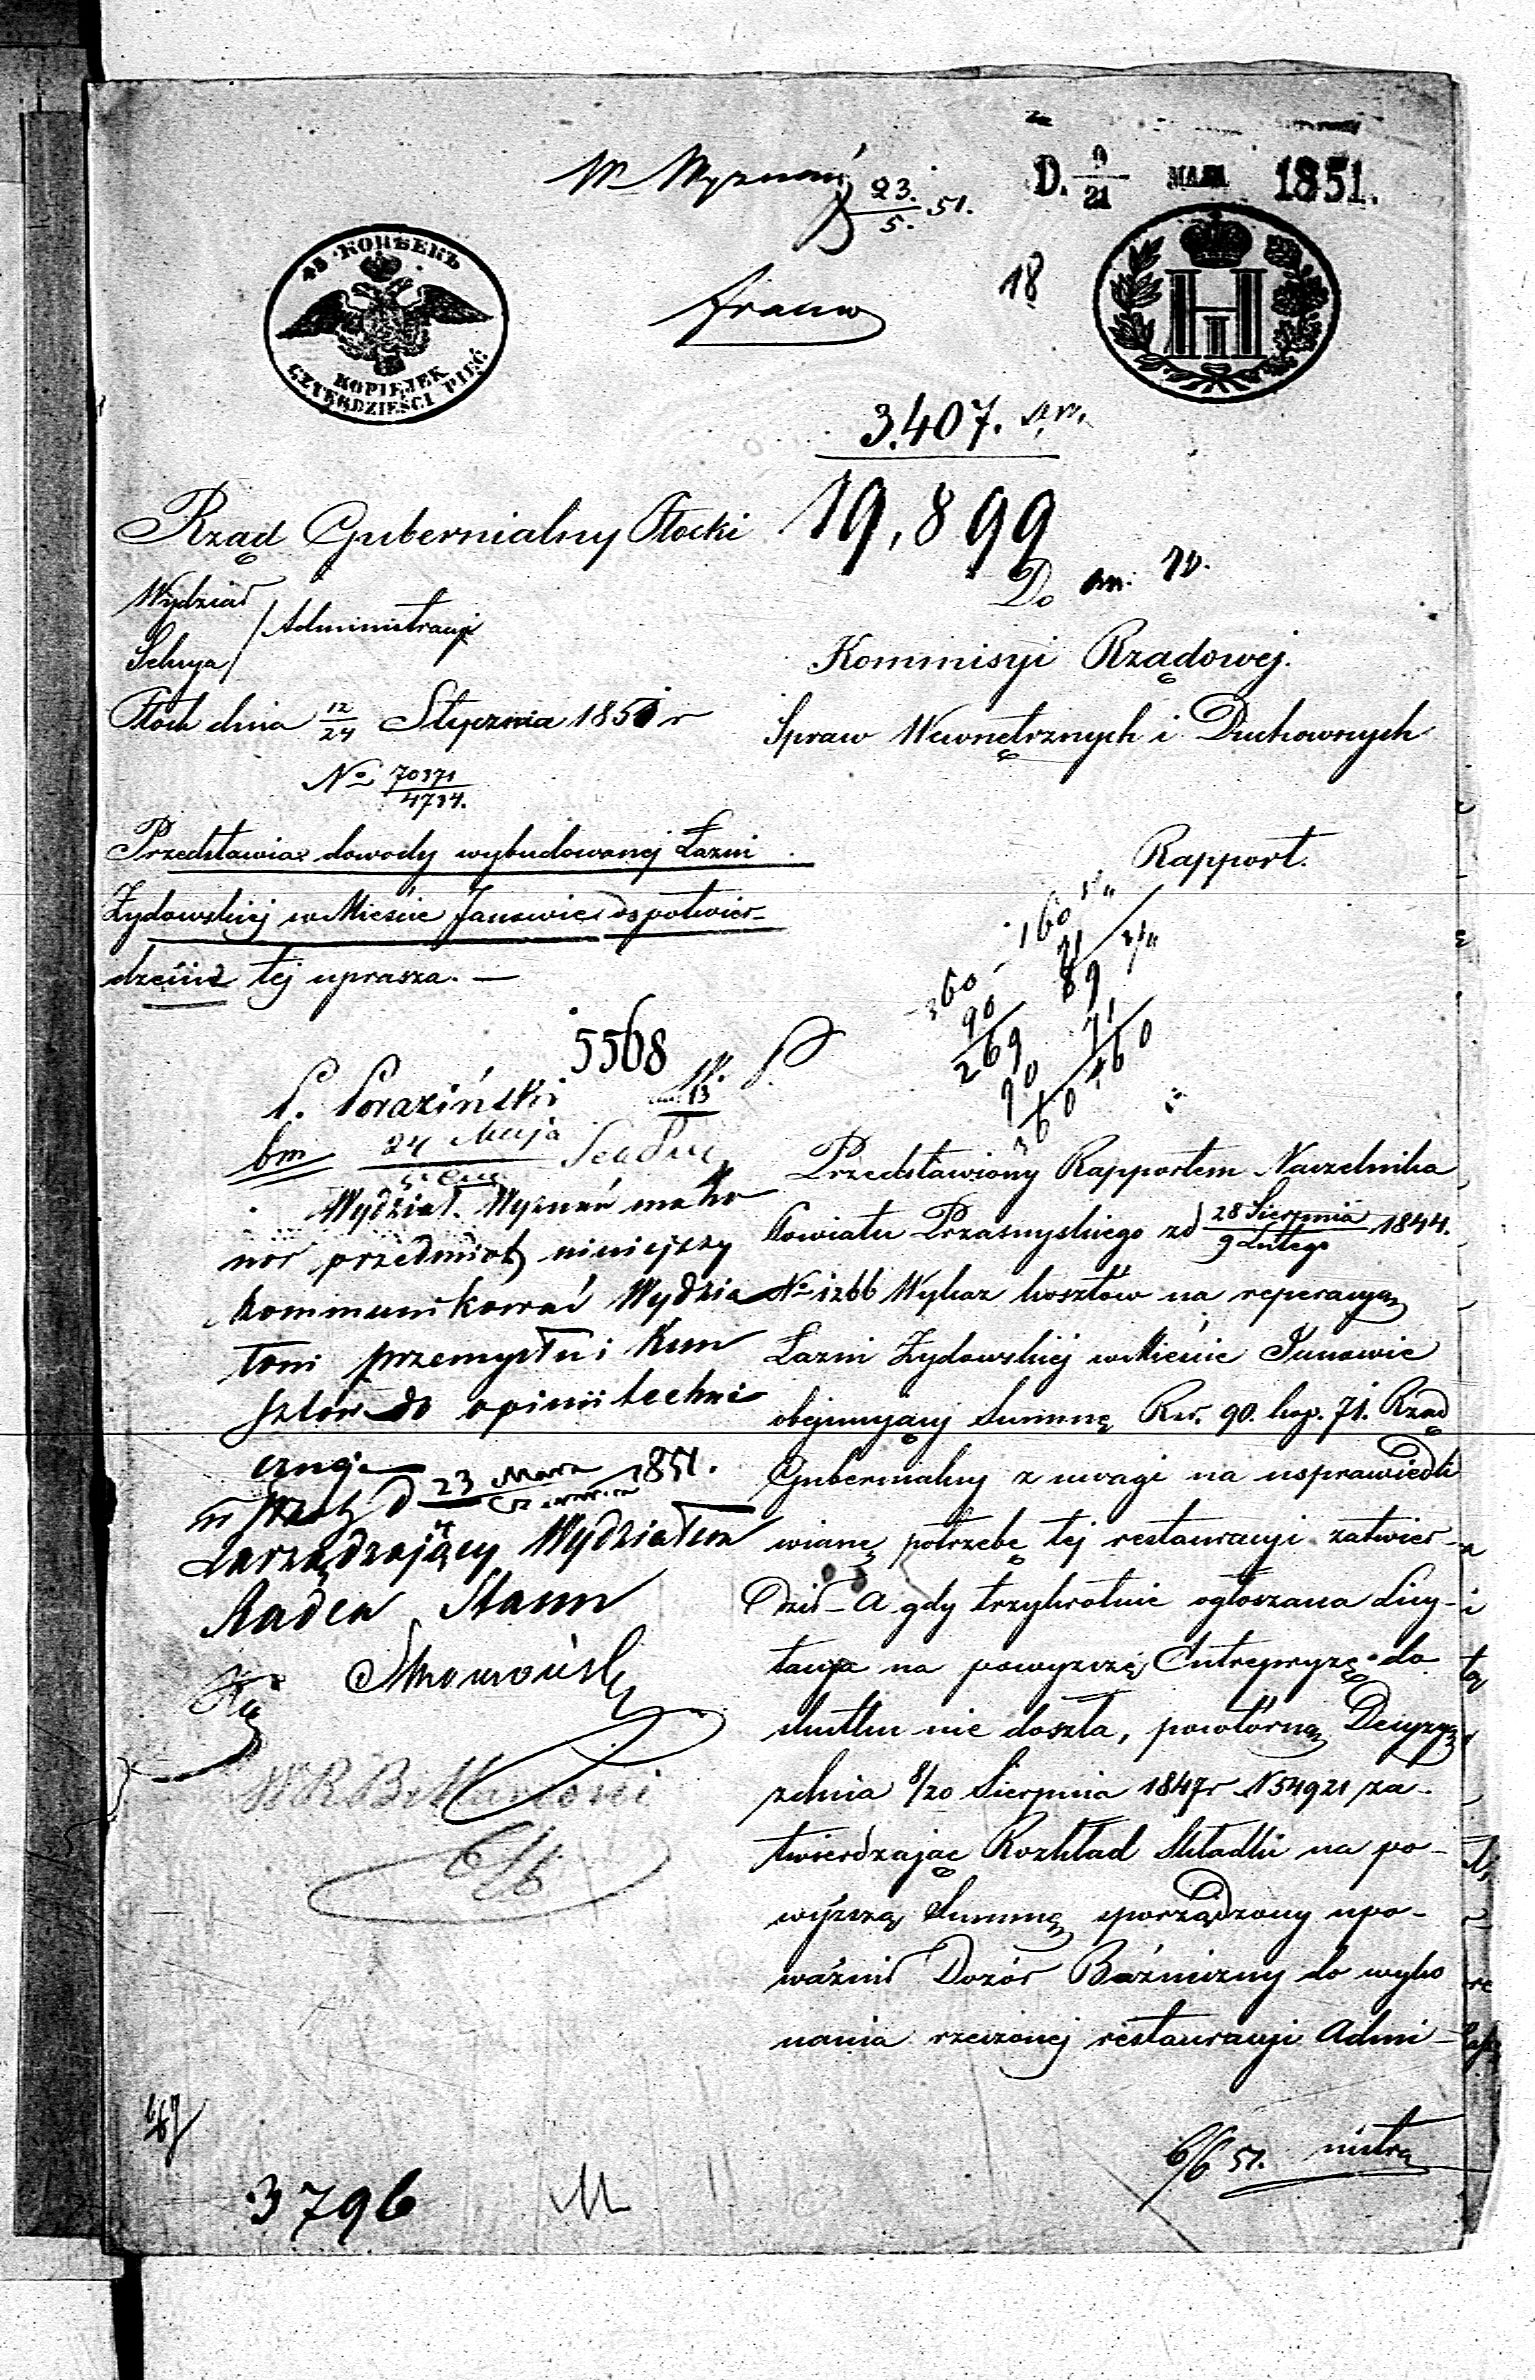 W. Wyznań
23./5. 51.
D. 9/21 МАЯ 1851.
45 КОПѢЕКЪ
KOPIEJEK
CZTERDZIEŚCI PIĘĆ
18
3.407.
19,899
Rząd Gubernialny Płocki
Wydział
Administracji
Sekcya
Płock dnia 12/24 Stycznia 1851 r
No 70371/4734.
Przedstawia dowody wybudowanej Łazni
Żydowskiej w Mieście Janowie do potwier-
dzenia tej uprasza. —
5568
P. Poraziński
bm 24 Maja
Wydział Wyznań ma ho
nor przedmiot niniejszy
kommunikować Wydzia
łowi przemysłu i Kun
sztów do opinii techni
cznej
d 23 Maja/Czerwca 1851.
Zarządzający Wydziałem
Radca Stanu
3796
Do
Kommisyi Rządowej.
Spraw Wewnętrznych i Duchownych
Rapport.
160
71
89
360
90
269
71
90
160
360
Przedstawiony Rapportem Naczelnika
Powiatu Przasnyskiego zd 28 Sierpnia/9 Lutego 1844.
No 1266 Wykaz kosztów na reperacyą
Łazni Żydowskiej w Mieście Janowie
obejmujący Summę Rs. 90. kop. 71. Rząd
Gubernialny z uwagi na usprawiedli
wioną potrzebę tej restauracyi zatwier-
dził – A gdy trzykrotnie ogłoszana Licy-
tacya na powyższą Entrepryzę do
skutku nie doszła, powtórną Decyzyą
z dnia 8/20 Sierpnia 1847 r N 54921 za-
twierdzając Rozkład Składki na po-
wyższą Summę sporządzony upo-
ważnił Dozór Bóźniczny do wyko
nania rzeczonej restauracyi Admi-
nistra
6/6 51.